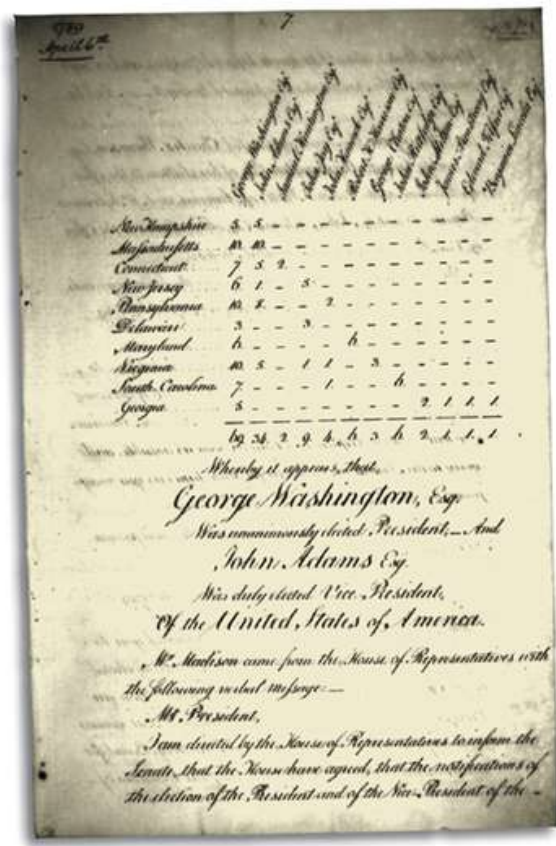 7
1789
April 6th
George Washington Esq
John Adams Esq
Samuel Huntington Esq
John Jay Esq
John Hancock Esq
Robert H. Harrison Esq
George Clinton Esq
John Rutledge Esq
John Milton Esq
James Armstrong Esq
Edward Telfair Esq
Benjamin Lincoln Esq
New Hampshire 5. 5. - - - - - - - - - -
Massachusetts 10. 10. - - - - - - - - - -
Connecticut 7 5 2. - - - - - - - - -
New Jersey 6 1. - 5. - - - - - - - -
Pennsylvania 10. 8. - - 2 - - - - - - -
Delaware 3 - - 3. - - - - - - - -
Maryland 6. - - - - 6. - - - - - -
Virginia 10. 5 - 1 1 - 3 - - - - -
South Carolina 7. - - - 1. - - 6. - - - -
Georgia 5. - - - - - - - 2. 1. 1. 1.
69 34 2 9. 4. 6 3 6 2 1. 1. 1.
Whereby it appears, that,
George Washington, Esq.
Was unanimously elected President,— And
John Adams Esq.
Was duly elected Vice President,
Of the United States of America.
Mr. Madison came from the House of Representatives with
the following verbal message:—
Mr President,
I am directed by the House of Representatives to inform the
Senate, that the House have agreed, that the notifications of
the election of the President and of the Vice-President of the —